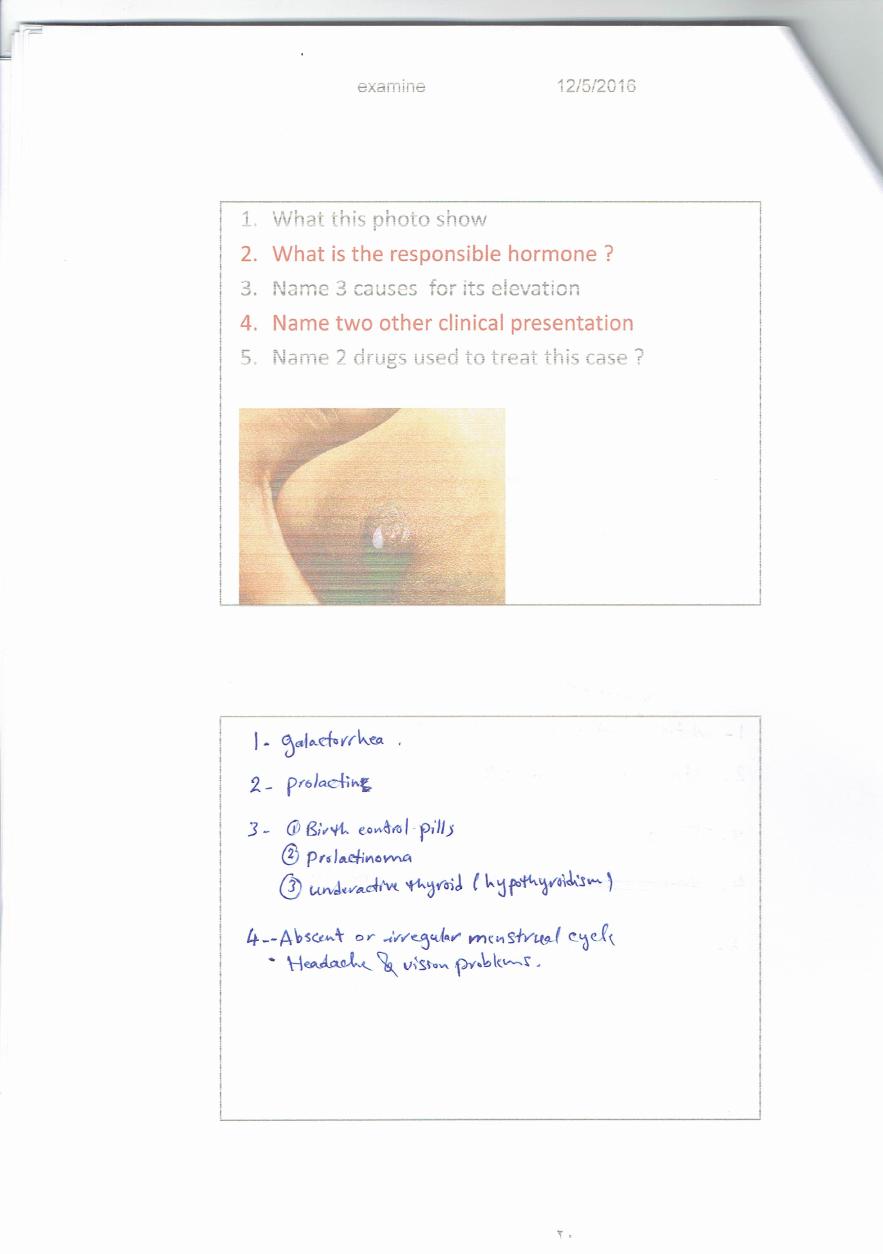 examine 12/5/2016
1. What this photo show
2. What is the responsible hormone ?
3. Name 3 causes for its elevation
4. Name two other clinical presentation
5. Name 2 drugs used to treat this case ?
1- galactorrhea .
2- Prolactin
3- ① Birth control pills
② Prolactinoma
③ underactive thyroid (hypothyroidism)
4-- Abscent or irregular menstrual cycle
- Headache & vision problems.
٢٠